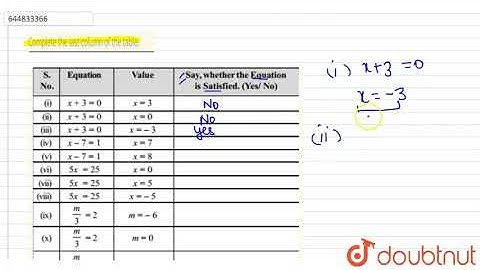 644833366
Complete the last column of the table.
S. No. Equation Value Say, whether the Equation is Satisfied. (Yes/ No)
(i) x + 3 = 0 x = 3 No
(ii) x + 3 = 0 x = 0 No
(iii) x + 3 = 0 x = – 3 yes
(iv) x – 7 = 1 x = 7
(v) x – 7 = 1 x = 8
(vi) 5x = 25 x = 0
(vii) 5x = 25 x = 5
(viii) 5x = 25 x = – 5
(ix) m/3 = 2 m = – 6
(x) m/3 = 2 m = 0
m
(i) x+3 =0
x = -3
(ii)
doubtnut